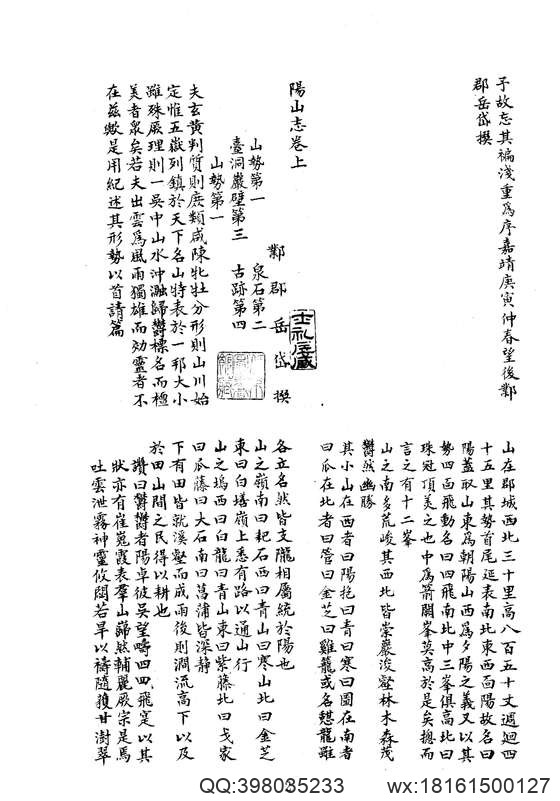 予故忘其褊淺重爲序嘉靖庚寅仲春望後鄭
郡岳岱撰
陽山志卷上
鄭郡岳岱撰
山勢第一 泉石第二
臺洞巖壁第三 古跡第四
山勢第一
夫玄黄判質則庶類咸陳牝牡分形則山川始
定惟五嶽列鎮於天下名山特表於一邦大小
雖殊厥理則一吳中山水沖瀜歸欝標名而檀
美者衆矣若夫出雲爲風雨獨雄而効靈者不
在兹歟是用紀述其形勢以首諸篇
山在郡城西北三十里高八百五十丈週迴四
十五里其勢首尾延表南北東西面陽故名曰
陽蓋取山東爲朝陽山西爲夕陽之義又以其
勢四面飛動名曰四飛南北中三峯俱高北曰
珠冠頂美之也中爲箭闕峯莫高於是矣揔而
言之有十二峯
山之南多荒峻其西北皆崇巖浚壑林木森茂
欝然幽勝
其小山在西者曰陽抱曰青曰寒曰圖在南者
曰瓜在北者曰管曰金芝曰雞龍或名憩龍雖
各立名然皆支隴相屬統於陽也
山之嶺南曰耙石西曰青山曰寒山北曰金芝
東曰白墡嶺上悉有路以通山行
山之塢西曰白龍曰青山東曰紫藤北曰戈家
曰瓜藤曰大石南曰菖蒲皆深静
下有田皆就溪壑而成雨後則澗流高下以及
於田山間之民得以耕也
讚曰欝欝者陽卓彼吳望疇四四飛寔以其
狀亦有崔嵬霞表羣山巋然輔麗厥宗是爲
吐雲泄霧神靈攸閟若旱以禱隨獲甘澍翠
QQ:398035233 wx:18161500127